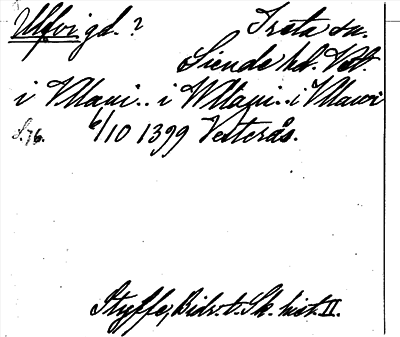 Ulfvi gd. ? Irsta sn.
Siende hd. Vstl.
i Vllaui.. i Wllaui.. i Vllawi
S. 76. 6/10 1399 Vesterås.
Styffe, Bidr. t. Sk. hist. II.